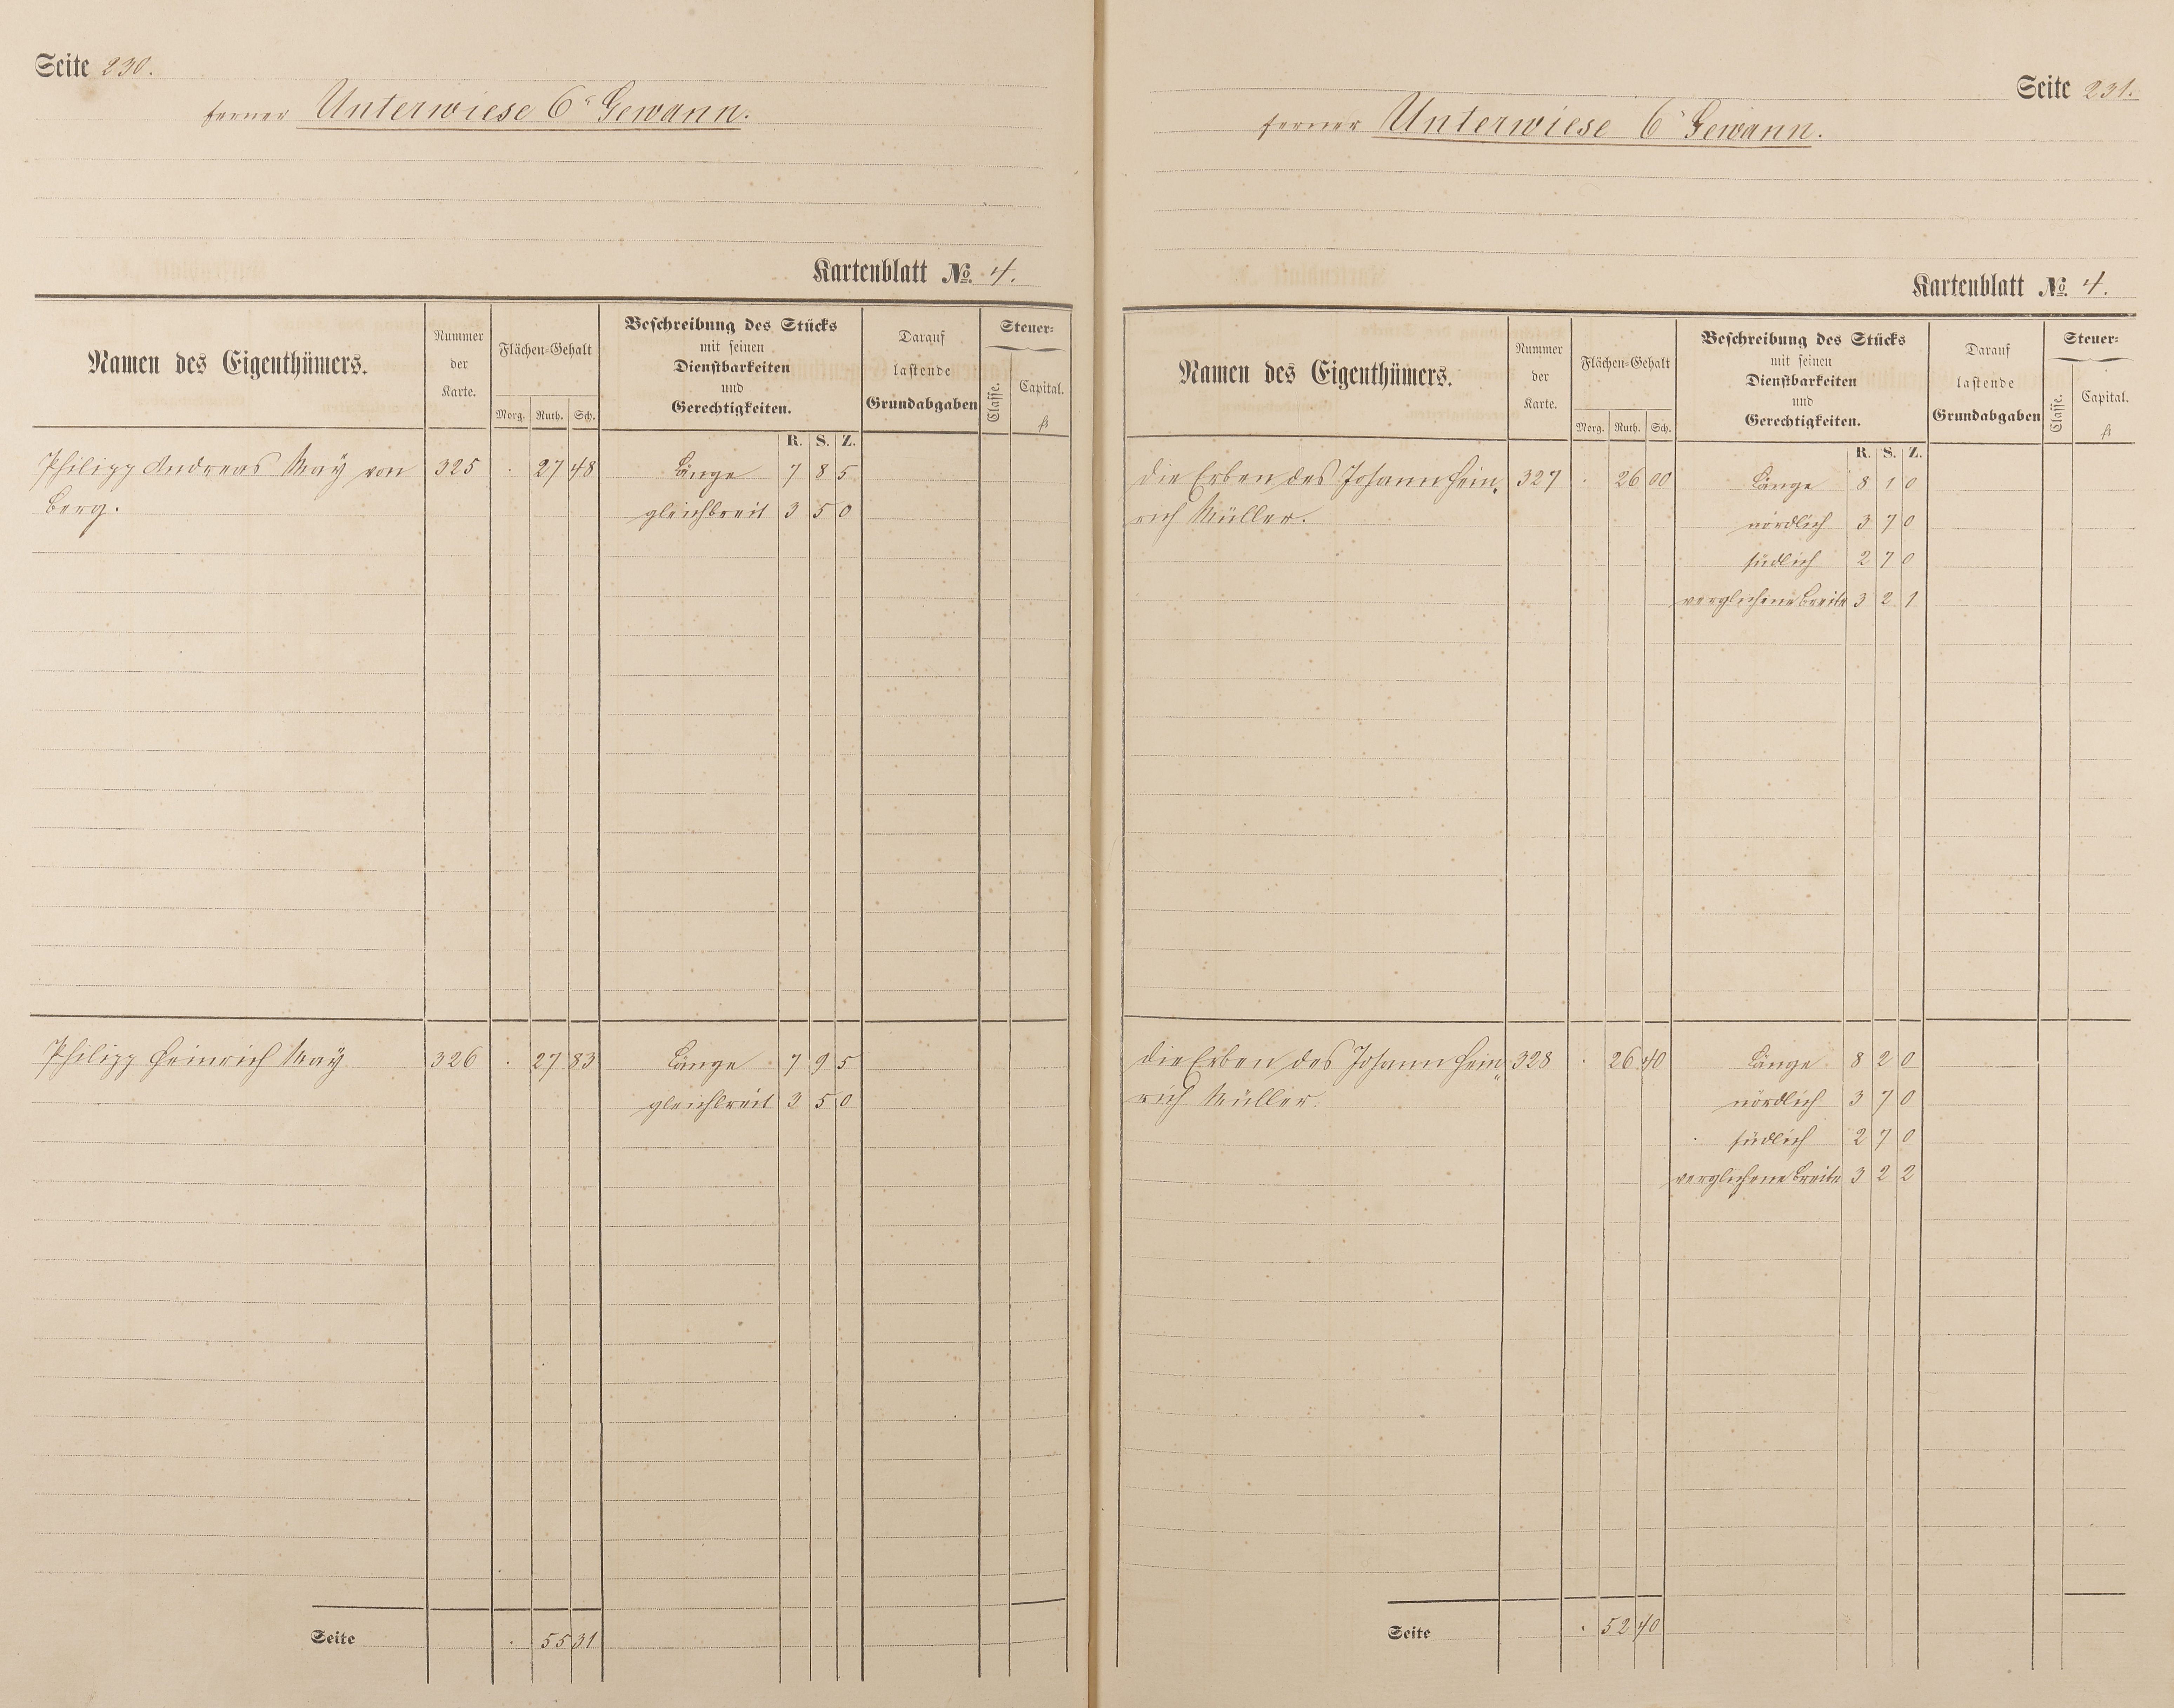 Seite 230.
ferner Unterwiese 6e Gewann.
Kartenblatt No. 4.
Namen des Eigenthümers.
Nummer der Karte.
Flächen-Gehalt
Morg. Ruth. Sch.
Beschreibung des Stücks
mit seinen
Dienstbarkeiten
und
Gerechtigkeiten.
Darauf
lastende
Grundabgaben
Steuer-
Classe.
Capital.
R. S. Z.
Philipp Andreas May von 325 . 27 48 Länge 7 8 5
Berg. gleichbreit 3 5 0
Philipp Heinrich May 326 . 27 83 Länge 7 9 5
gleichbreit 3 5 0
Seite . 55 31
Seite 231.
ferner Unterwiese 6e Gewann.
Kartenblatt No. 4.
Namen des Eigenthümers.
Nummer der Karte.
Flächen-Gehalt
Morg. Ruth. Sch.
Beschreibung des Stücks
mit seinen
Dienstbarkeiten
und
Gerechtigkeiten.
Darauf
lastende
Grundabgaben
Steuer-
Classe.
Capital.
R. S. Z.
die Erben des Johann Hein, 327 . 26 00 Länge 8 1 0
rich Müller. nördlich 3 7 0
südlich 2 7 0
verglichene Breite 3 2 1
die Erben des Johann Hein„ 328 . 26 40 Länge 8 2 0
rich Müller. nördlich 3 7 0
südlich 2 7 0
verglichene Breite 3 2 2
Seite . 52 40